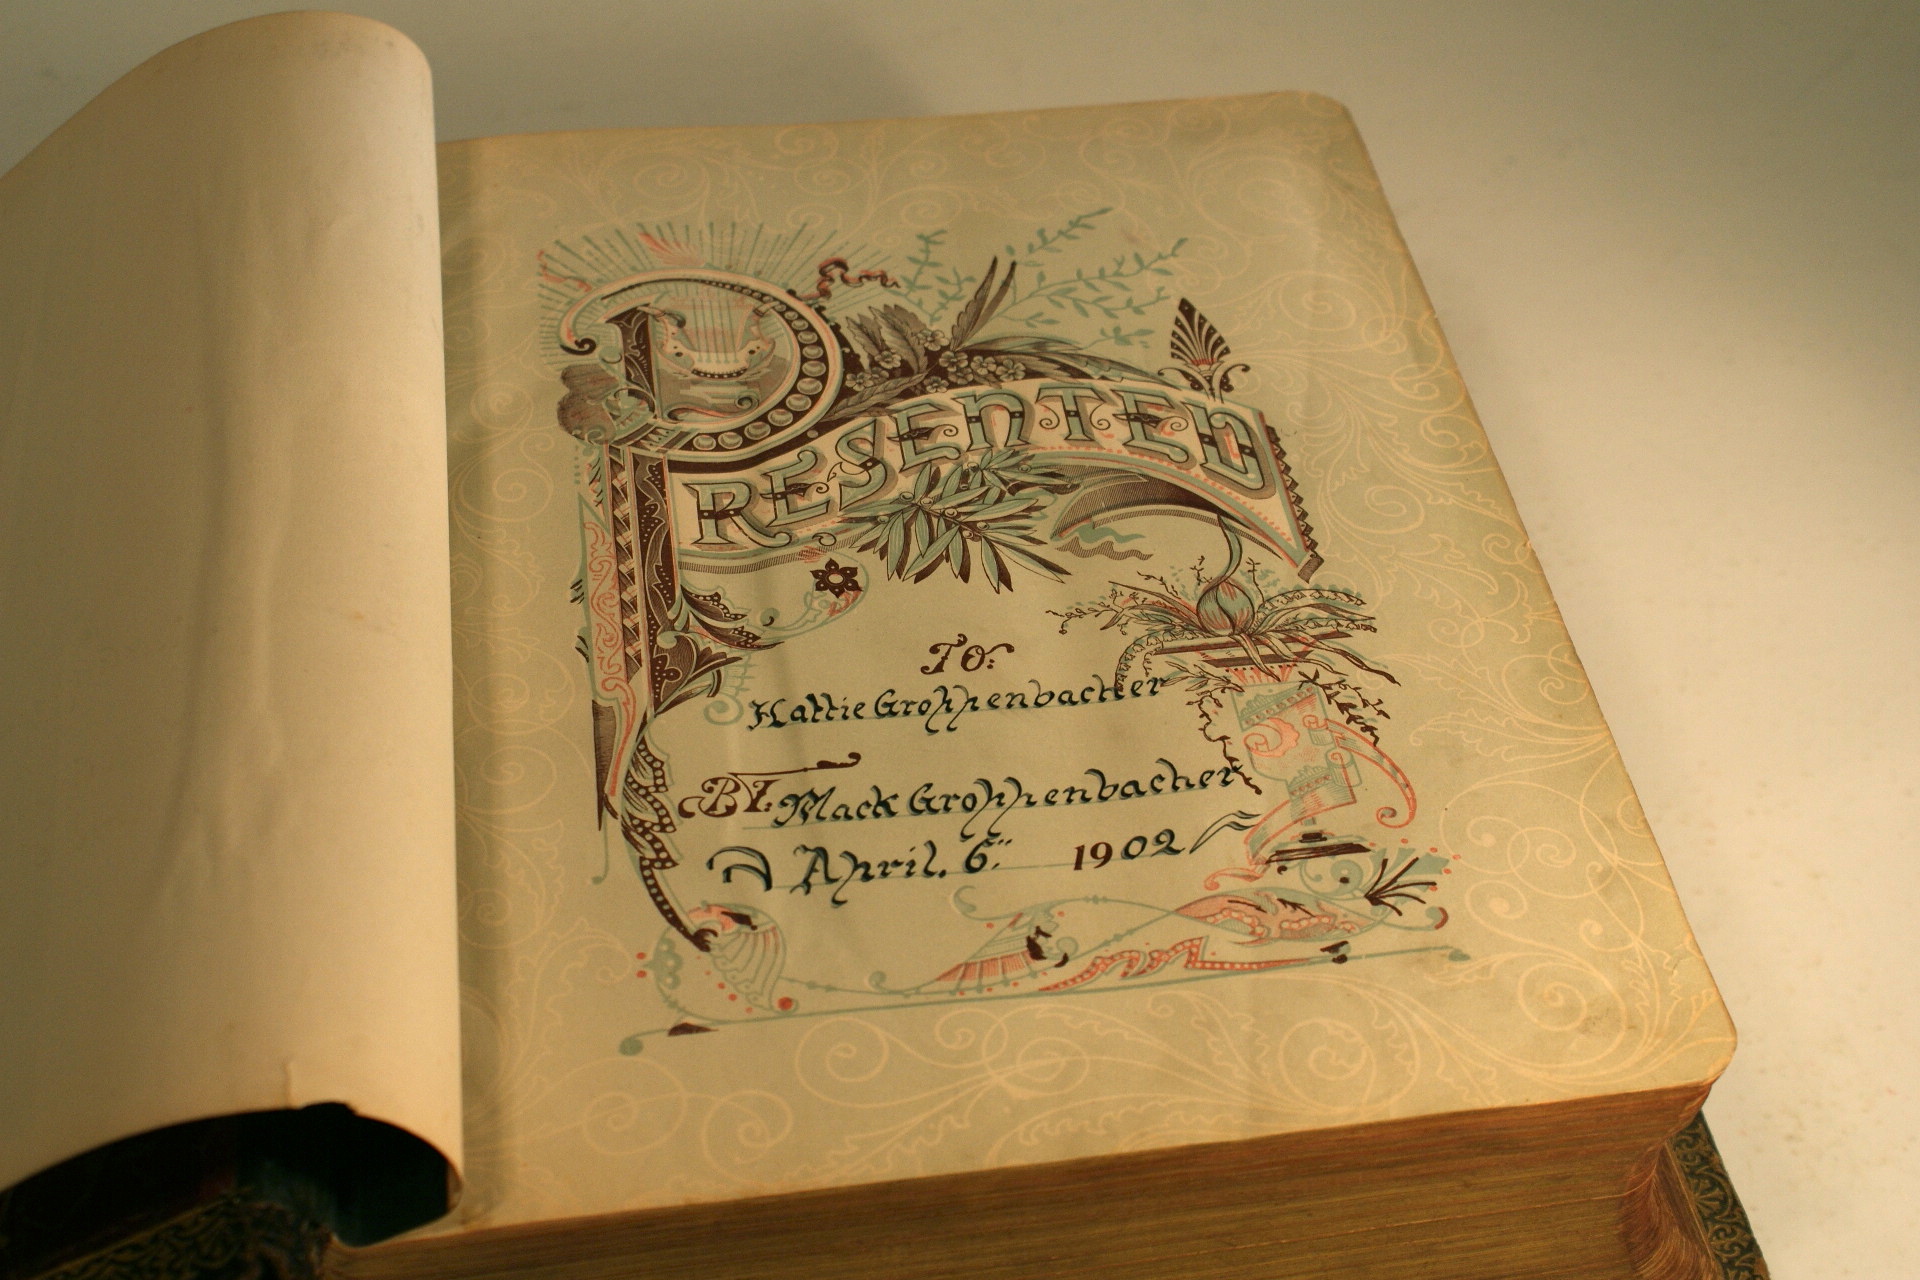 PRESENTED
TO:
Hattie Groppenbacher
BY. Mack Groppenbacher
April. 6. 1902